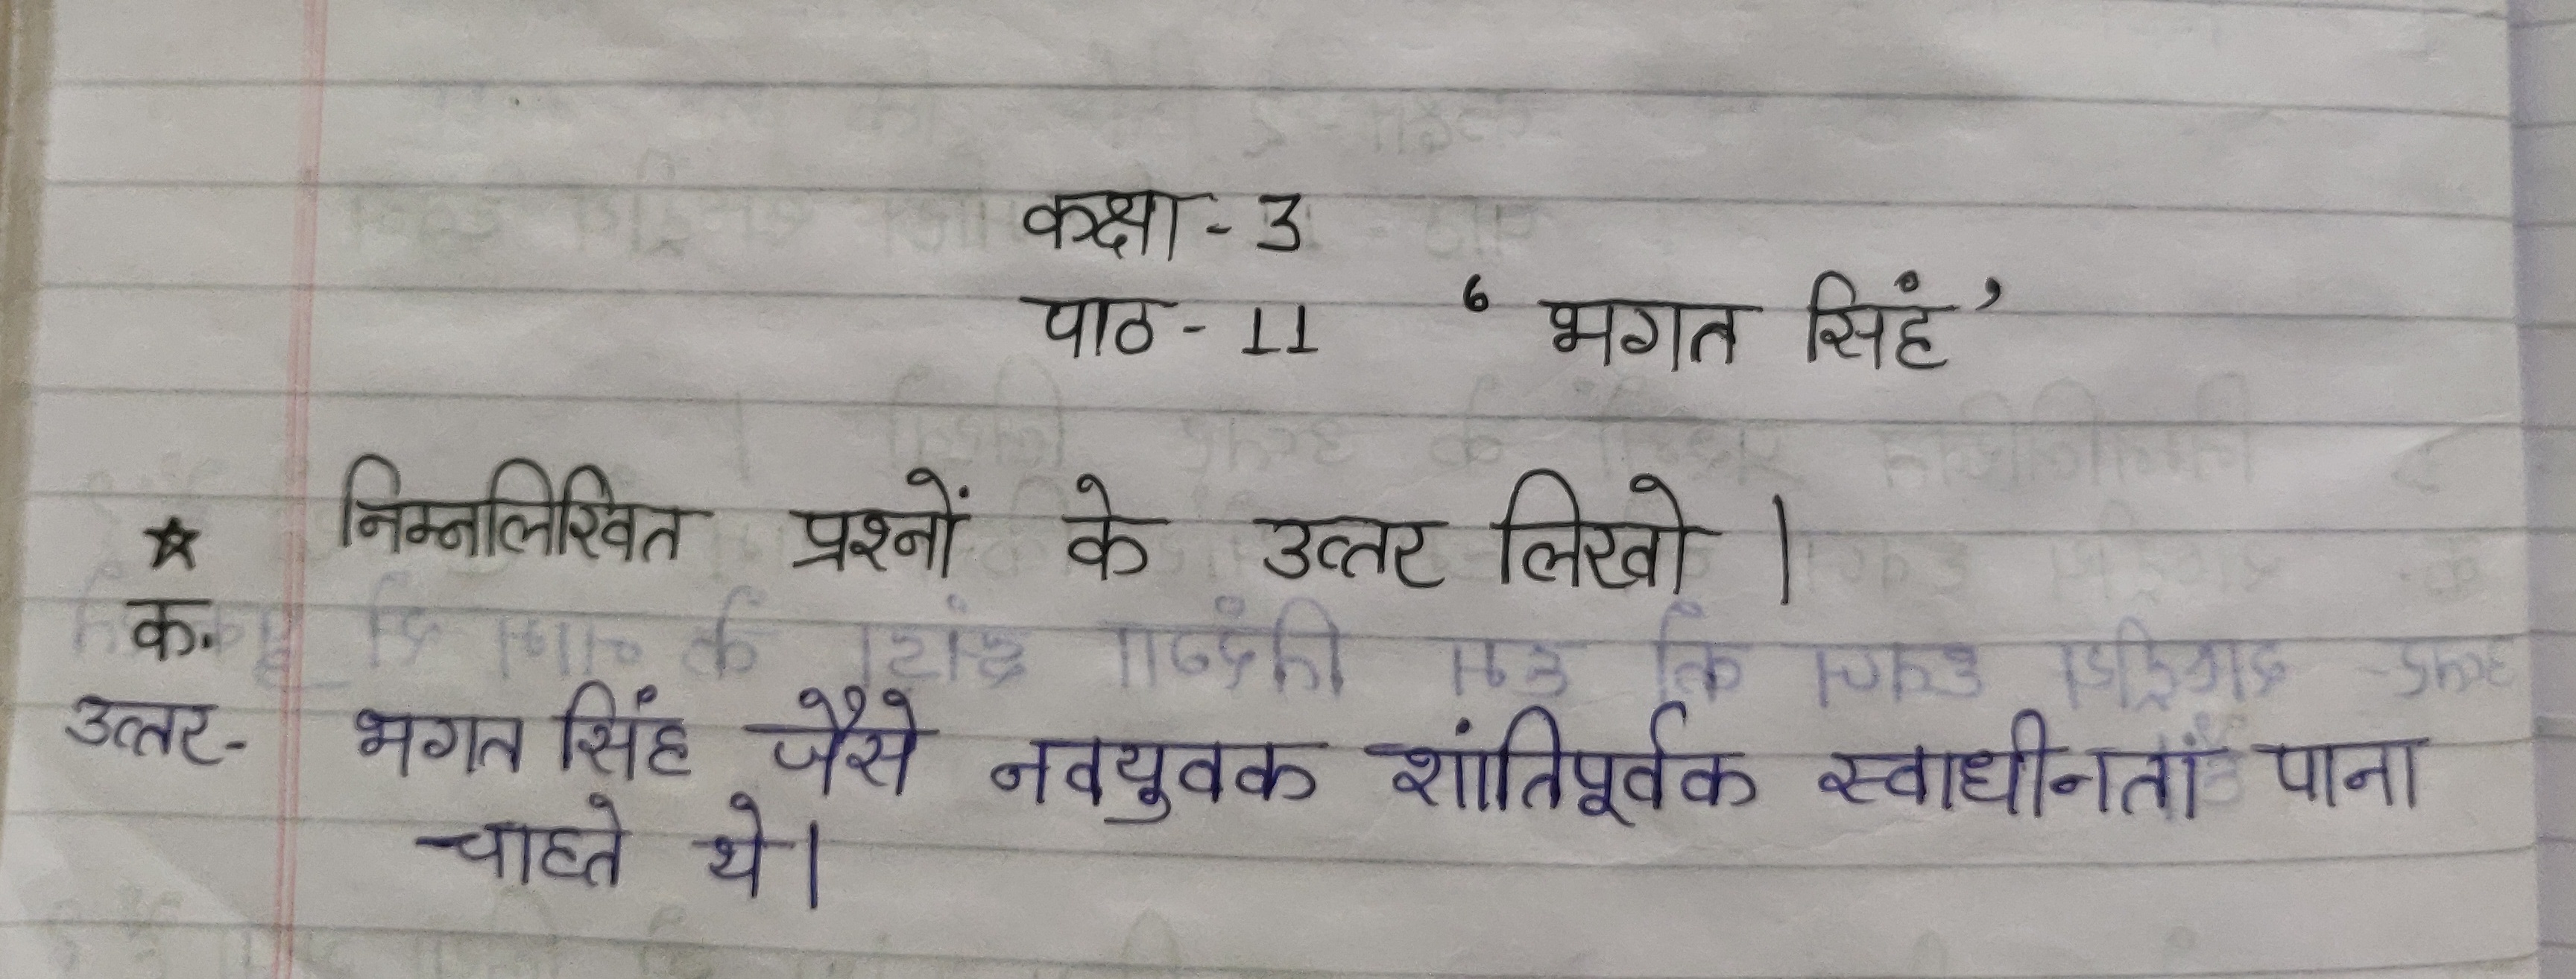 कक्षा - 3
पाठ - 11 ‘ भगत सिंह ’
☆ निम्नलिखित प्रश्नों के उत्तर लिखो |
क.
उत्तर- भगत सिंह जैसे नवयुवक शांतिपूर्वक स्वाधीनता पाना
चाहते थे |